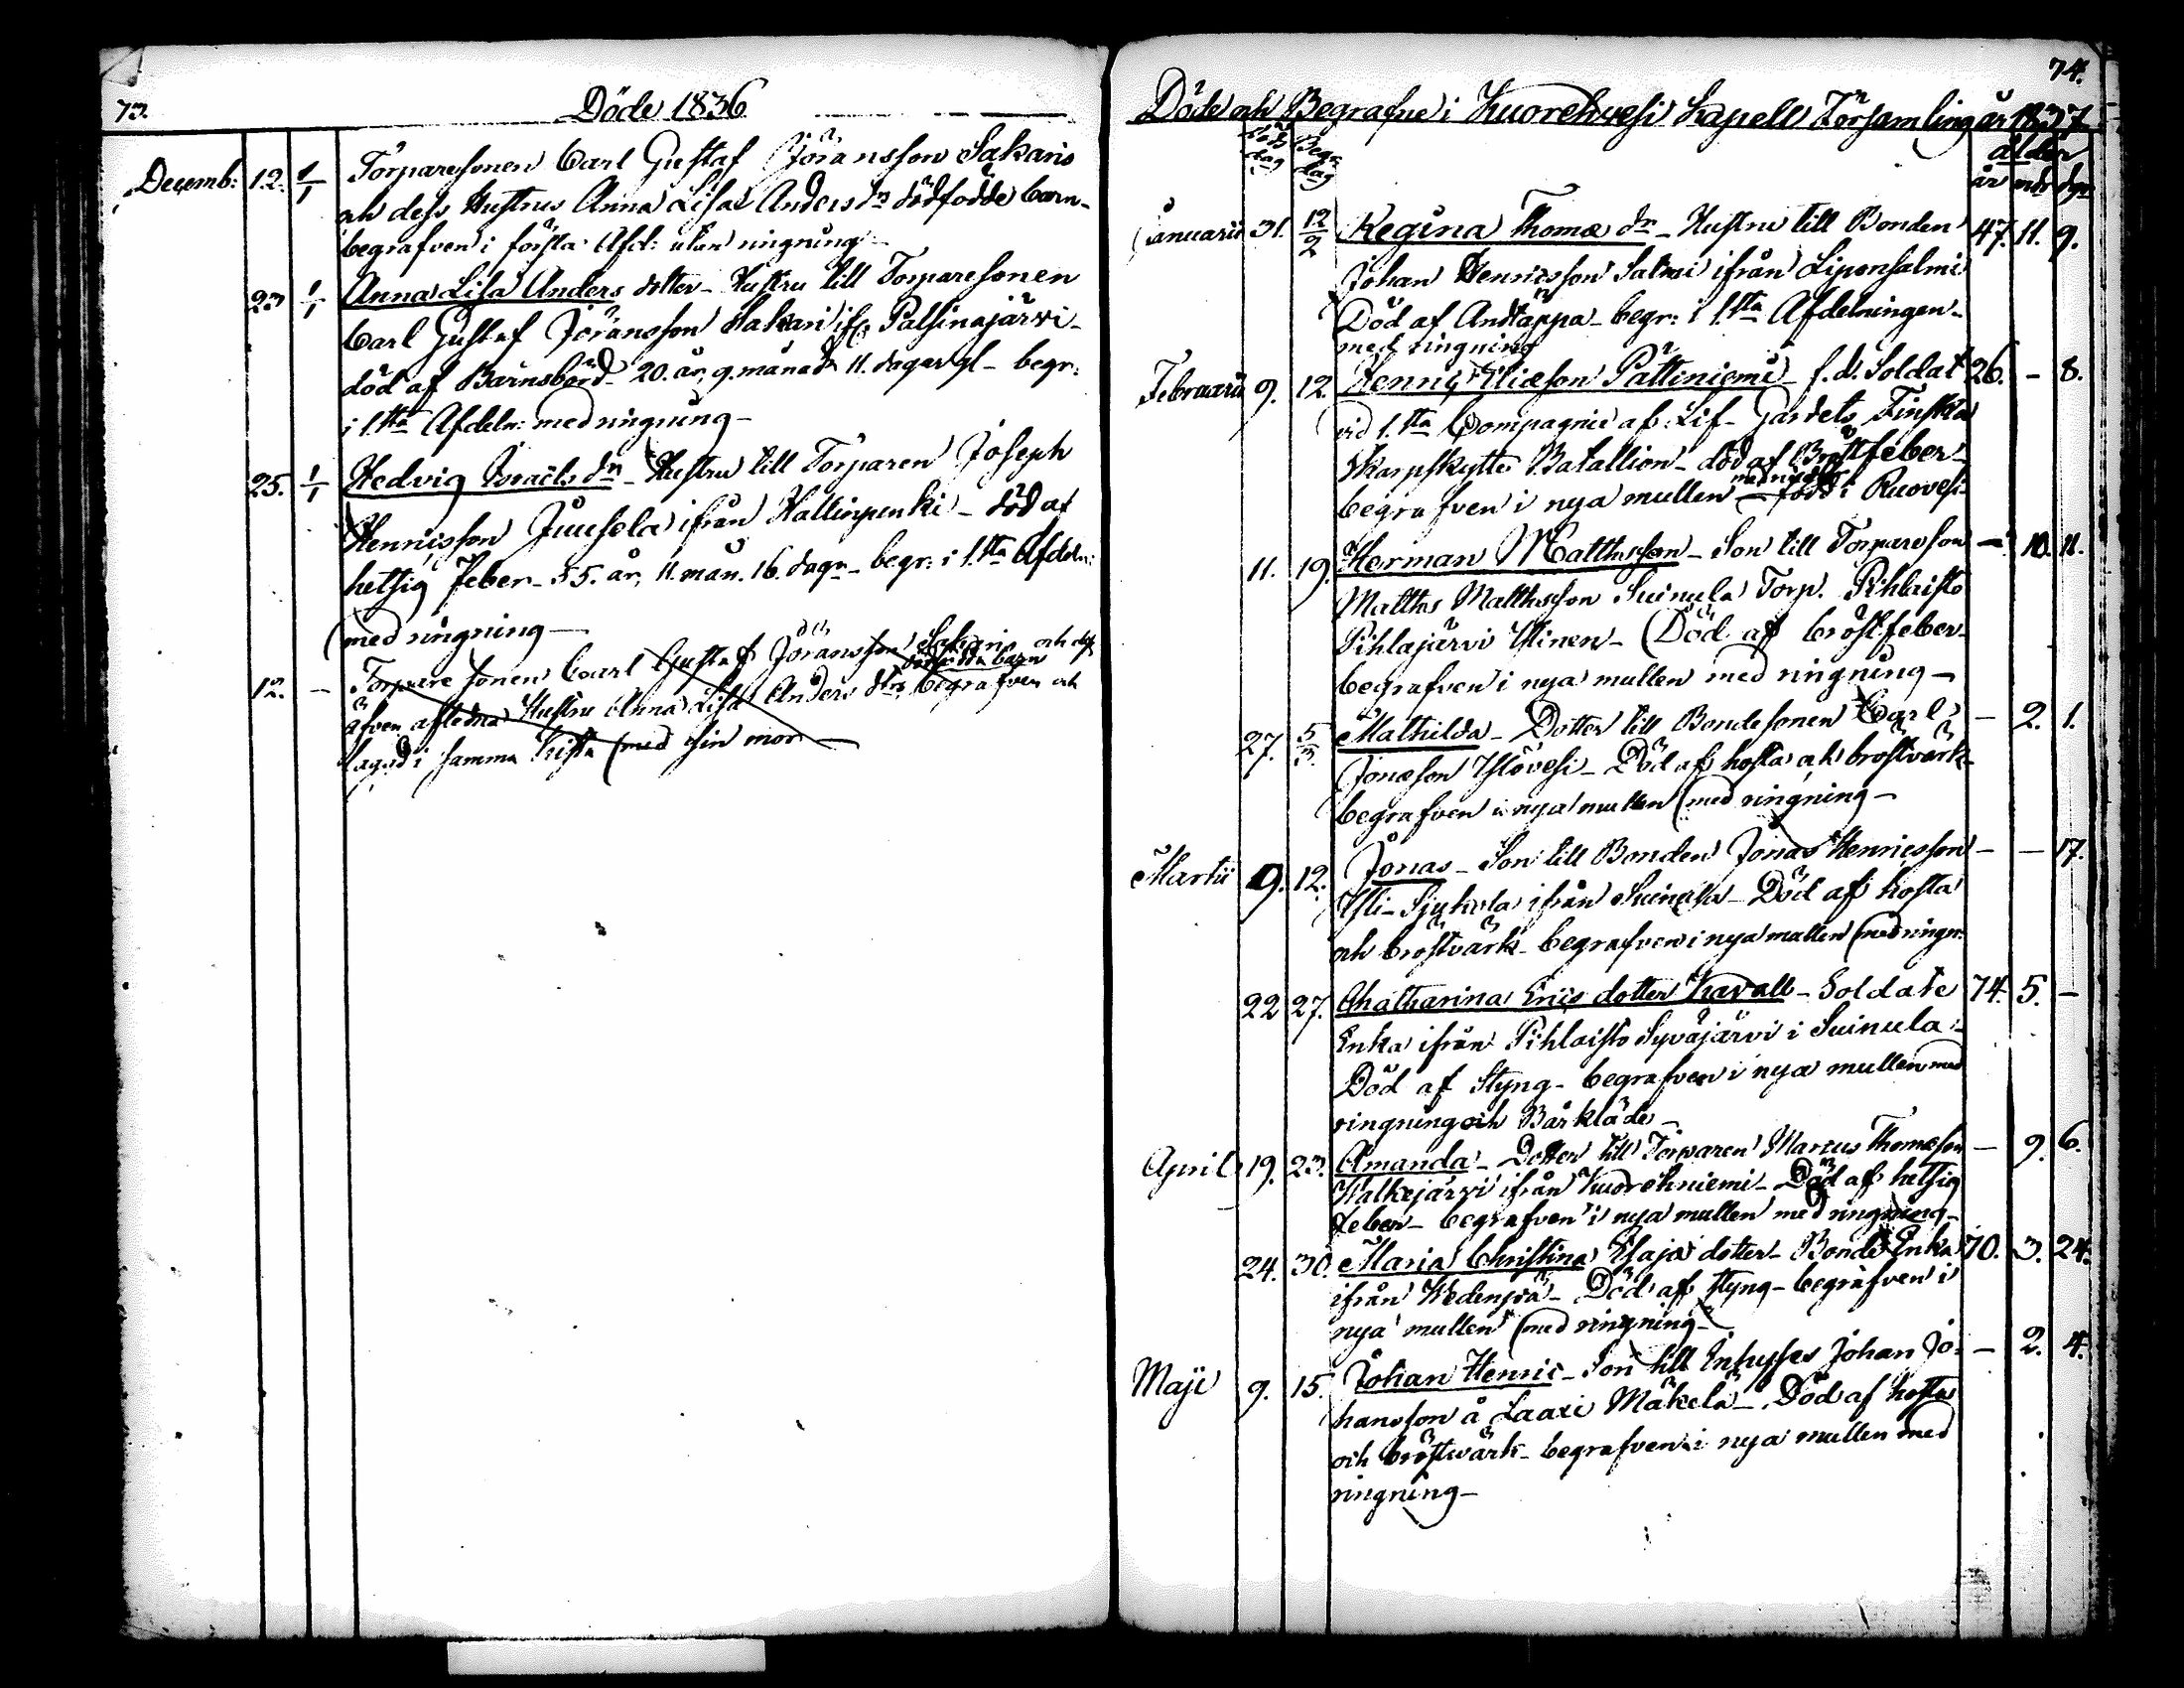 73.
Döde 1836
Decemb: 12. 1/1 Torparesonen Carl Gustaf Jöransson Sakaris
och dess Hustrus Anna Lisa Anders dr dödfödde barn -
begrafven i första Afd: utan ringning -
23 1/1 Anna Lisa Anders dotter - Hustru till Torparesonen
Carl Gustaf Jöransson Sakari ifr: Palsinajärvi -
död af Barnsbörd - 20. år, 9. månadr 11. dagar gl - begr:
i 1.sta Afdeln: med ringning -
25. 1/1 Hedvig Israels dr - Hustru till Torparen Joseph
Henricsson Juusela ifrån Hallinpenki - död af
hetsig feber - 55. år, 11. mån. 16. dagr - begr: i 1.sta Afdeln:
med ringning -
12. - Torpare sonen Carl Gustaf Jöransson Sakaris och dess
dödfödda barn
äfven aflidna Hustru Anna Lisa Anders drs begrafven och
lagad i samma Kista med sin mor -
74.
Döde och Begrafne i Kuorehvesi Kapell Församling år 1837
Döds dag Begr: dag ålder
år mdr dgr
Januarii 31. 12/2 Regina Thomæ dr - Hustru till Bonden 47. 11. 9.
Johan Henricsson Salmi ifrån Liponsalmi
Död af Andtäppa - begr: i 1.sta Afdelningen -
med ringning
Februarii 9. 12. Henric Eliæson Pättiniemi - f.d. Soldat 26. - 8.
vid 1.sta Compagnie af: Lif - Gardets Finska
Skarpskytte Batallion - död af Bröstfeber -
begrafven i nya mullen - född i Ruovesi
11. 19. Herman Matthsson - Son till Torpareson - 10. 11.
Matths Matthsson Suinula Torp. Pihlaisto
Pihlajärvi Hinen - Död af bröstfeber -
begrafven i nya mullen med ringning -
27. 5/3. Mathilda - Dotter till Bondesonen Carl - 2. 1.
Jonæson Ylövesi - Död af hosta och bröstvärk -
begrafven i nya mullen med ringning -
Martii 9. 12. Jonas - Son till Bonden Jonas Henricsson - - 17.
Yli-Sjukola ifrån Suinula - Död af hosta
och bröstvärk - begrafven i nya mullen med ringn:
22 27. Chatharina Erics dotter Kavall - Soldate 74. 5. -
Enka ifrån Pihlaisto Syväjärvi i Suinula -
Död af Styng - begrafven i nya mullen med
ringning och Bårkläde -
April 19. 23. Amanda - Dotter till Torparen Marcus Thomæson - 9. 6.
Walkejärvi ifrån Kuorehniemi - Död af hetsig
feber - begrafven i nya mullen med ringning -
24. 30. Maria Christina Esaja dotter - Bonde Enka 70. 3. 24.
ifrån Wedenpä - Död af styng - begrafven i
nya mullen med ringning -
Maji 9. 15. Johan Henric - Son till Inhyses Johan Jo- - 2. 4.
hansson å Laari Mäkelä - Död af hosta
och bröstwärk - begrafven i nya mullen med
ringning -